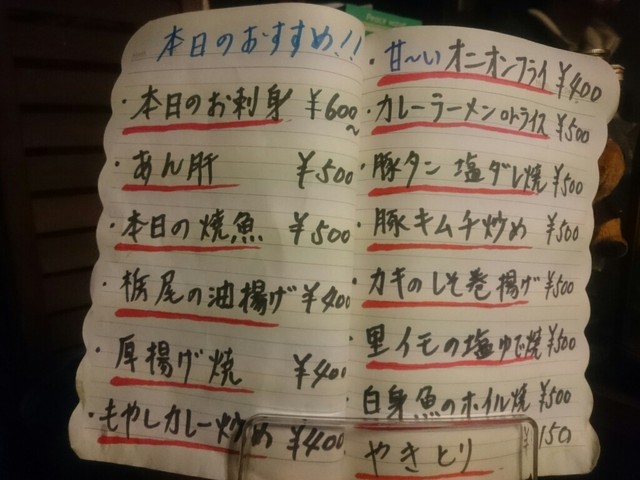 本日のおすすめ!!
・本日のお刺身 ¥600〜
・あん肝 ¥500
・本日の焼魚 ¥500
・栃尾の油揚げ ¥400
・厚揚げ焼 ¥400
・もやしカレー炒め ¥400
・甘〜いオニオンフライ ¥400
・カレーラーメンorライス ¥500
・豚タン塩ダレ焼 ¥500
・豚キムチ炒め ¥500
カキのしそ巻揚げ ¥500
里イモの塩ゆで焼 ¥500
白身魚のホイル焼 ¥500
やきとり ¥150